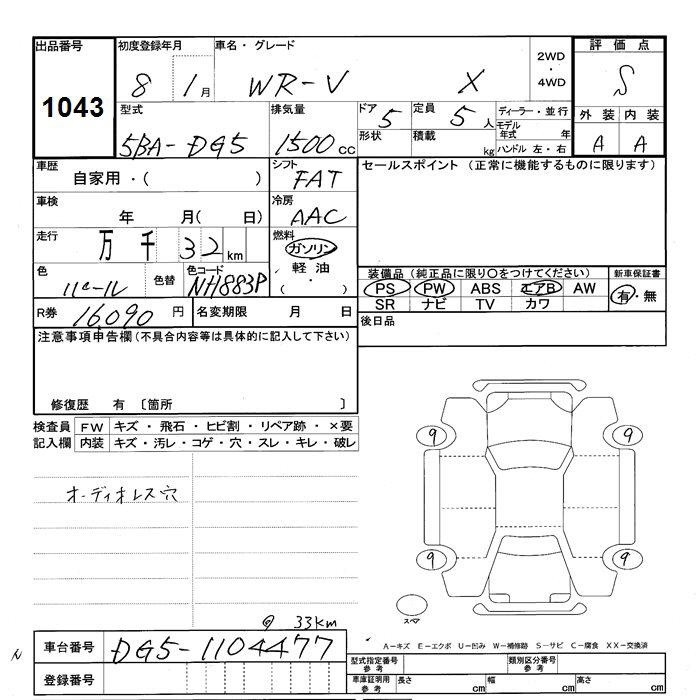 出品番号 初度登録年月 車名・グレード 評価点
1043 8 1月 WR-V X 2WD・4WD S
型式 排気量 ドア 定員 ディーラー・並行 外装 内装
5BA-DG5 1500cc 5 5人 モデル年式 年 A A
形状 積載 kg ハンドル 左・右
車歴 シフト セールスポイント (正常に機能するものに限ります)
自家用・( ) FAT
車検 冷房
年 月( 日) AAC
走行 燃料
万 千 32km ガソリン
軽油・( )
色 色替 色コード 装備品(純正品に限り○をつけてください) 新車保証書
パール NH883P PS PW ABS エアB AW 有・無
SR ナビ TV カワ
R券 16090円 名変期限 月 日 後日品
注意事項申告欄(不具合内容等は具体的に記入して下さい)
修復歴 有 〔箇所 〕
検査員 FW キズ・飛石・ヒビ割・リペア跡・×要
記入欄 内装 キズ・汚レ・コゲ・穴・スレ・キレ・破レ
9 9
オーディオレス穴
9 9
スペア
33km
車台番号 DG5-1104477
A-キズ E-エクボ U-凹み W-補修跡 S-サビ C-腐食 XX-交換済
型式指定番号 参考 類別区分番号 参考
登録番号 車庫証明用 参考 長さ cm 幅 cm 高さ cm